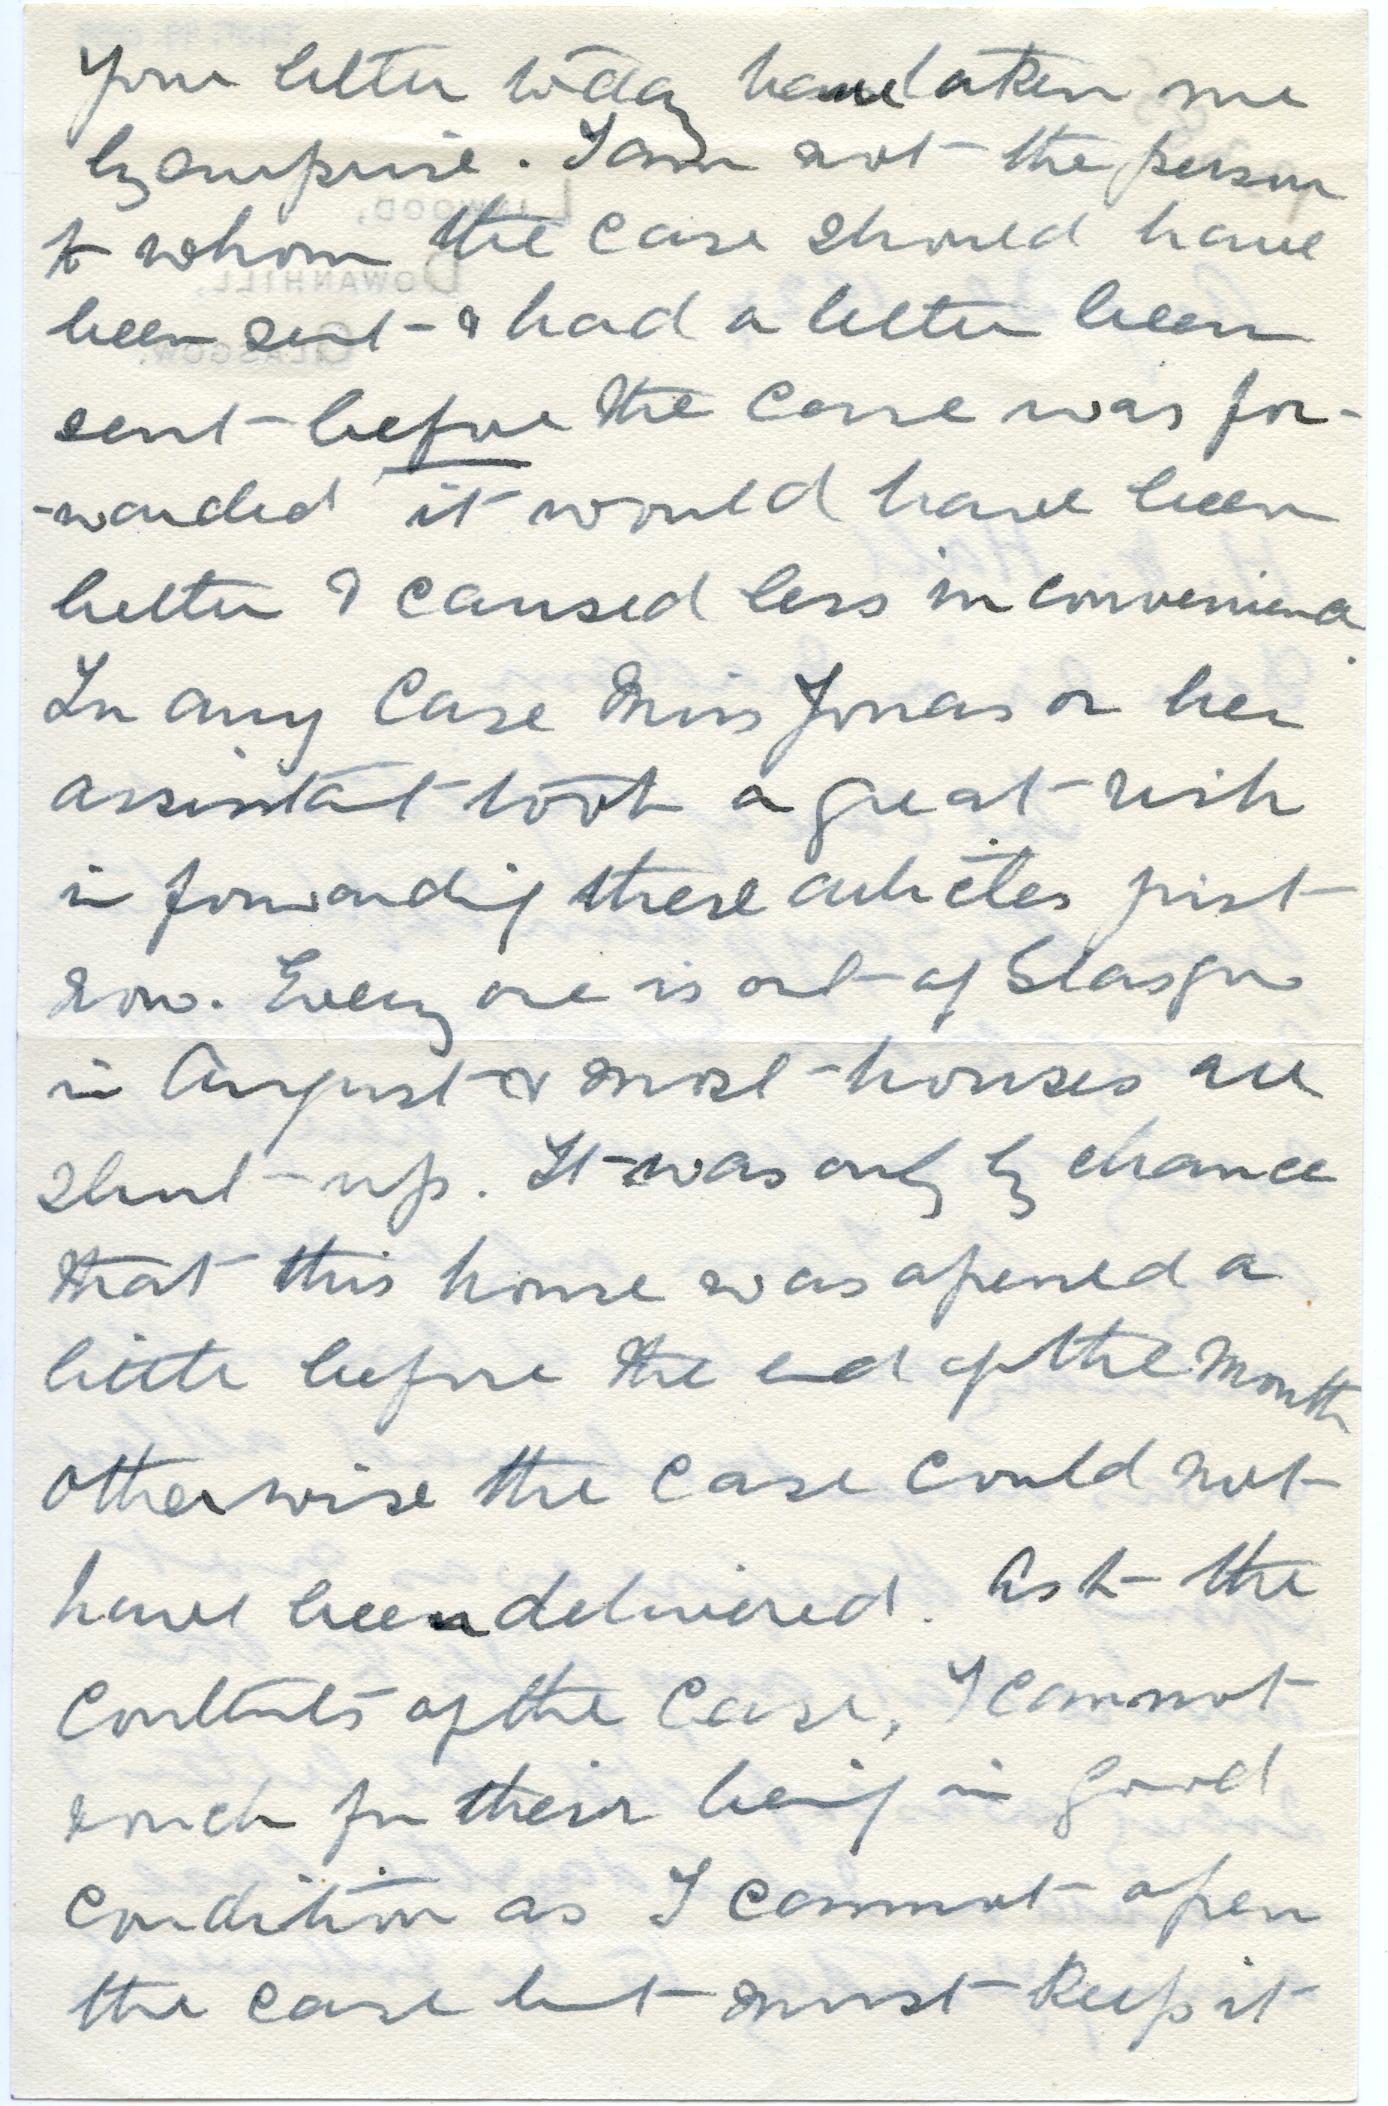 Your letter today have taken me
by surprise. I am not the person
to whom the case should have
been sent & had a letter been
sent before the case was for-
-warded it would have been
better & caused less inconvenience.
In any case Miss Jonas or her
assistant took a great risk
in forwarding these articles just
now. Every one is out of Glasgow
in August & most houses are
shut up. It was only by chance
that this house was opened a
little before the end of the month
otherwise the case could not
have been delivered. As to the
contents of the case, I cannot
vouch for their being in good
condition as I cannot open
the case but must keep it
LINWOOD,
DOWANHILL,
GLASGOW.